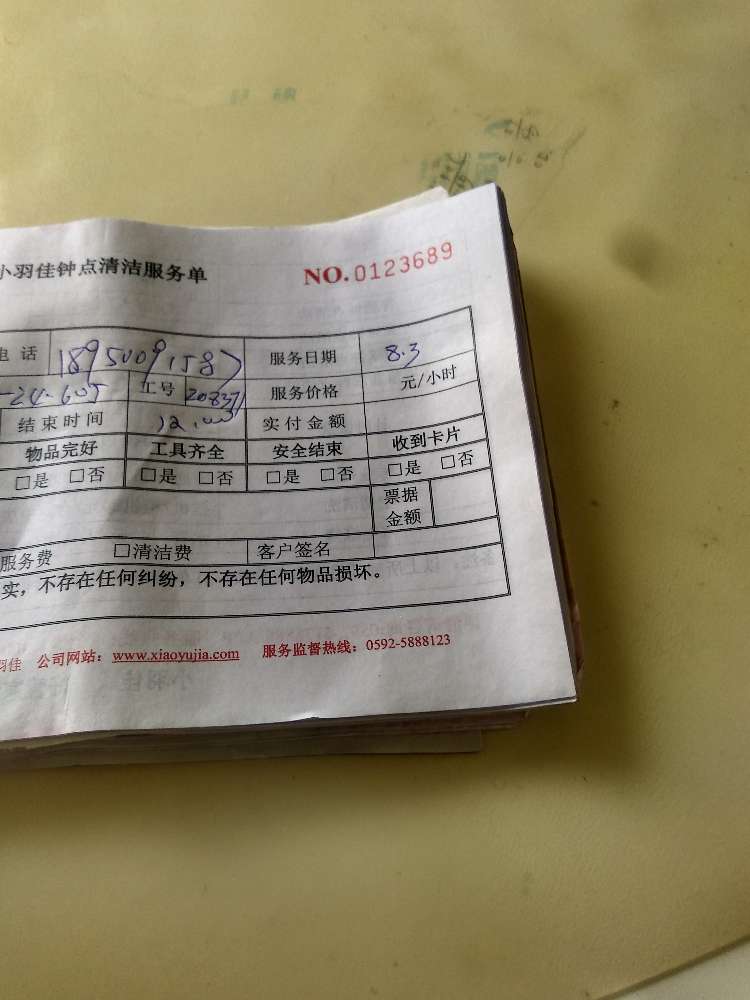 小羽佳钟点清洁服务单 NO.0123689
电话 18950091587 服务日期 8.3
-24-605 工号 20837 服务价格 元/小时
结束时间 12.00 实付金额
物品完好 工具齐全 安全结束 收到卡片
□是 □否 □是 □否 □是 □否 □是 □否
票据
金额
服务费 □清洁费 客户签名
实，不存在任何纠纷，不存在任何物品损坏。
羽佳 公司网站：www.xiaoyujia.com 服务监督热线：0592-5888123